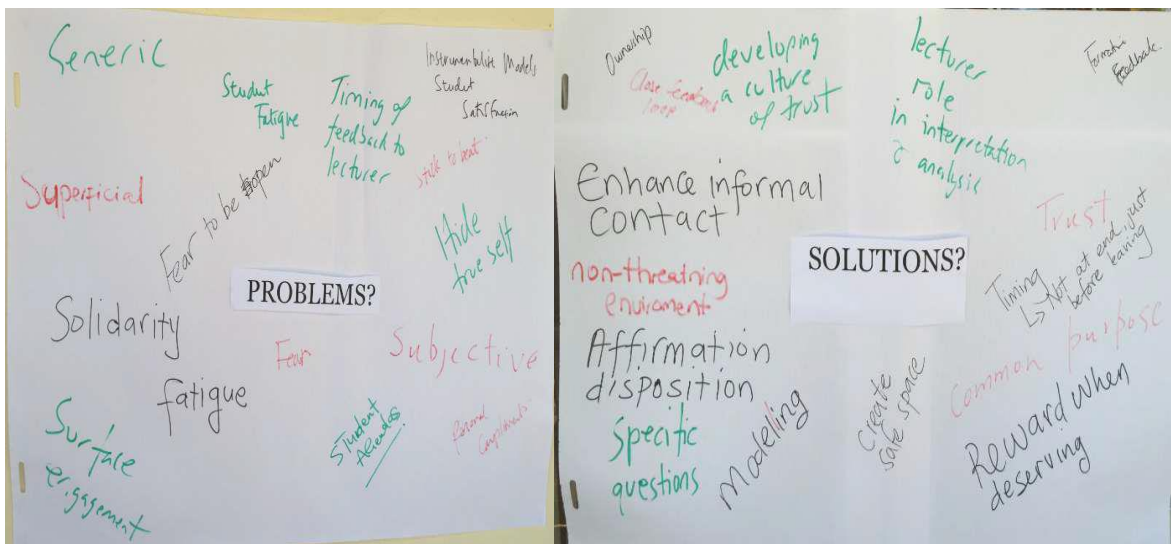 Generic
Student
Fatigue
Timing of
feedback to
lecturer
Instrumentalist Models
Student
Satisfaction
Superficial
Fear to be open
Stick to beat
Hide
true self
PROBLEMS?
Solidarity
fatigue
Fear
Subjective
Surface
engagement
Student
Agendas
Personal
Complaints
Ownership
Close feedback
loop
developing
a culture
of trust
lecturer
role
in interpretation
analysis
Formative
Feedback.
Enhance informal
contact
Trust
SOLUTIONS?
Timing
↳ Not at end, just
before
non-threatning
enviroment
Affirmation
disposition
Common purpose
specific
questions
Modelling
Create
safe space
Reward when
deserving